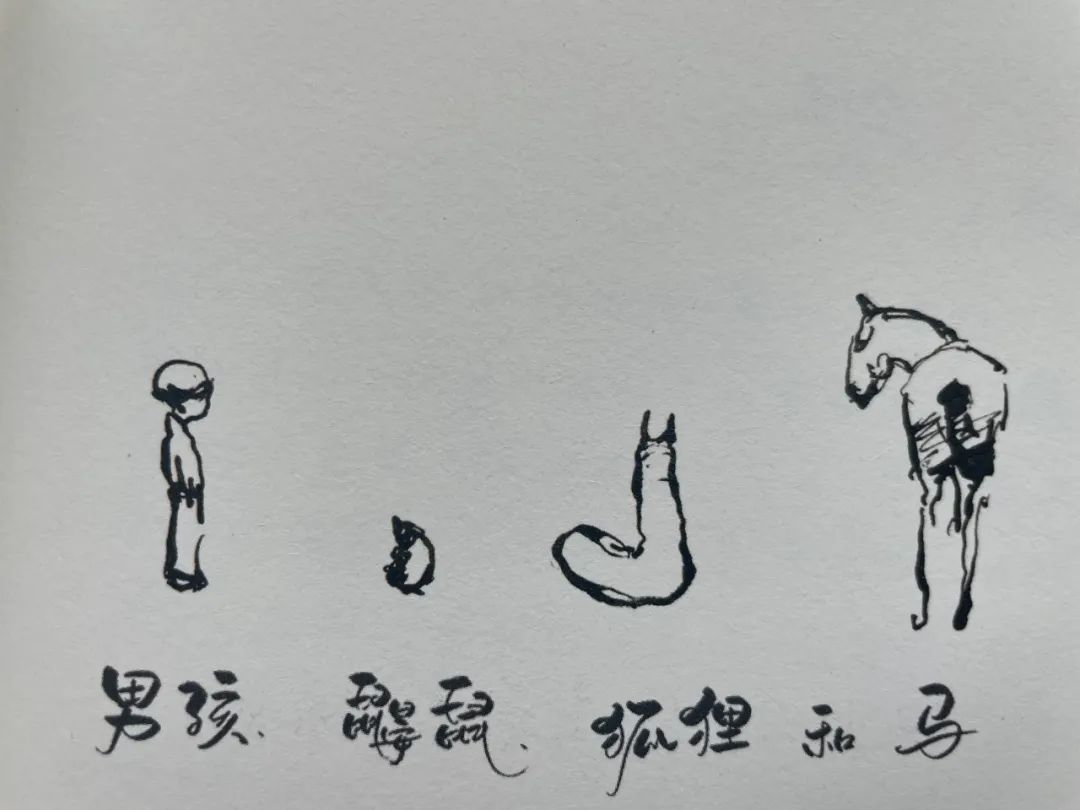 男孩、鼹鼠、狐狸和马